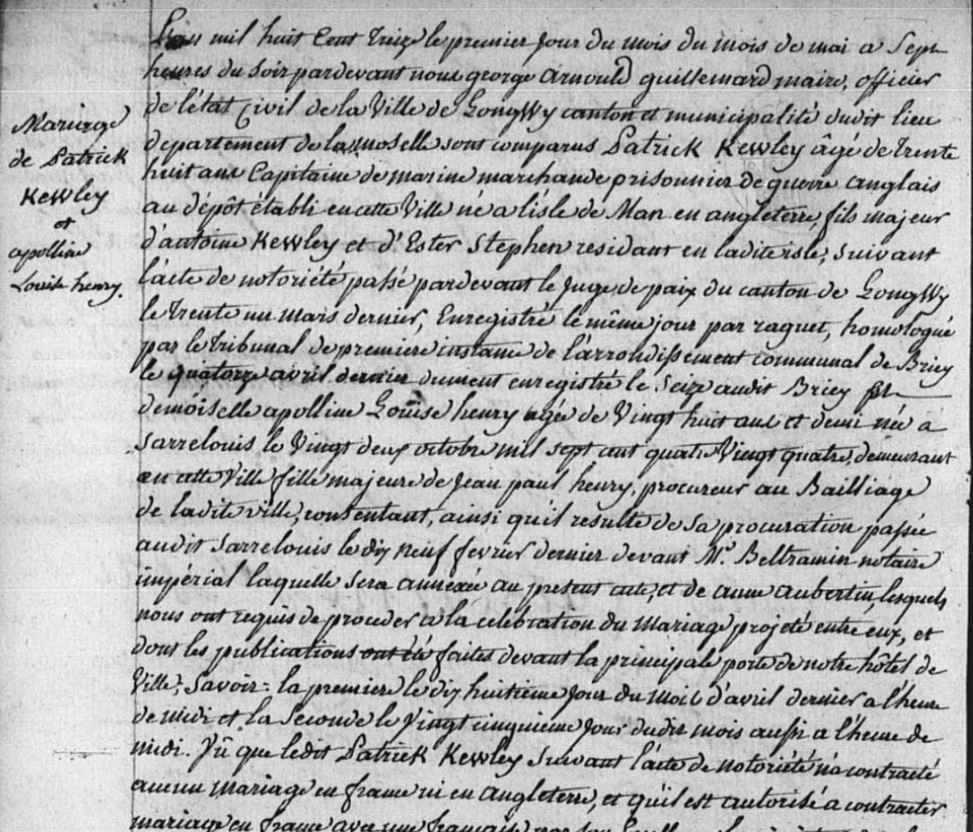 Mariage
de Patrick
Kewley
et
apolline
Louise henry.
L'an mil huit Cent treize le premier jour du mois du mois de mai a Sept
heures du soir pardevant nous george arnould guillemard maire, officier
de l'état Civil de la Ville de LongWy canton et municipalité dudit lieu
departement de la moselle sont comparus Patrick Kewley âgé de trente
huit ans Capitaine de marine marchande prisonnier de guerre anglais
au dépôt établi en cette Ville né a l'isle de Man en angleterre, fils majeur
d'antoine Kewley et d'Ester Stephen residant en ladite isle, suivant
l'acte de notoriété passé pardevant le Juge de paix du canton de LongWy
le trente un mars dernier, Enregistré le même jour par raguet, homologué
par le tribunal de premiere instance de l'arrondissement communal de Briey
le quatorze avril dernier dument enregistré le Seize audit Briey Et
demoiselle apolline Louise henry agée de Vingt huit ans et demi née a
Sarrelouis le Vingt deux octobre mil sept cent quatre Vingt quatre, demeurant
en cette Ville fille majeure de Jean paul henry, procureur au Bailliage
de ladite ville, consentant, ainsi qu'il resulte de sa procuration passée
audit Sarrelouis le dix neuf fevrier dernier devant Mr. Beltramin notaire
impérial laquelle sera annexée au present acte, et de anne aubertin, lesquels
nous ont requis de proceder a la celebration du Mariage projeté entre eux, et
dont les publications ont été faites devant la principale porte de notre hôtel de
Ville; Savoir: la premiere le dix huitieme jour du mois d'avril dernier a l'heure
de midi et la seconde le Vingt cinquieme Jour dudit mois aussi a l'heure de
midi. Vû que ledit Patrick Kewley suivant l'acte de notoriété n'a contracté
aucun mariage en france ni en angleterre, et qu'il est autorisé a contracter
mariage en france avec une française par